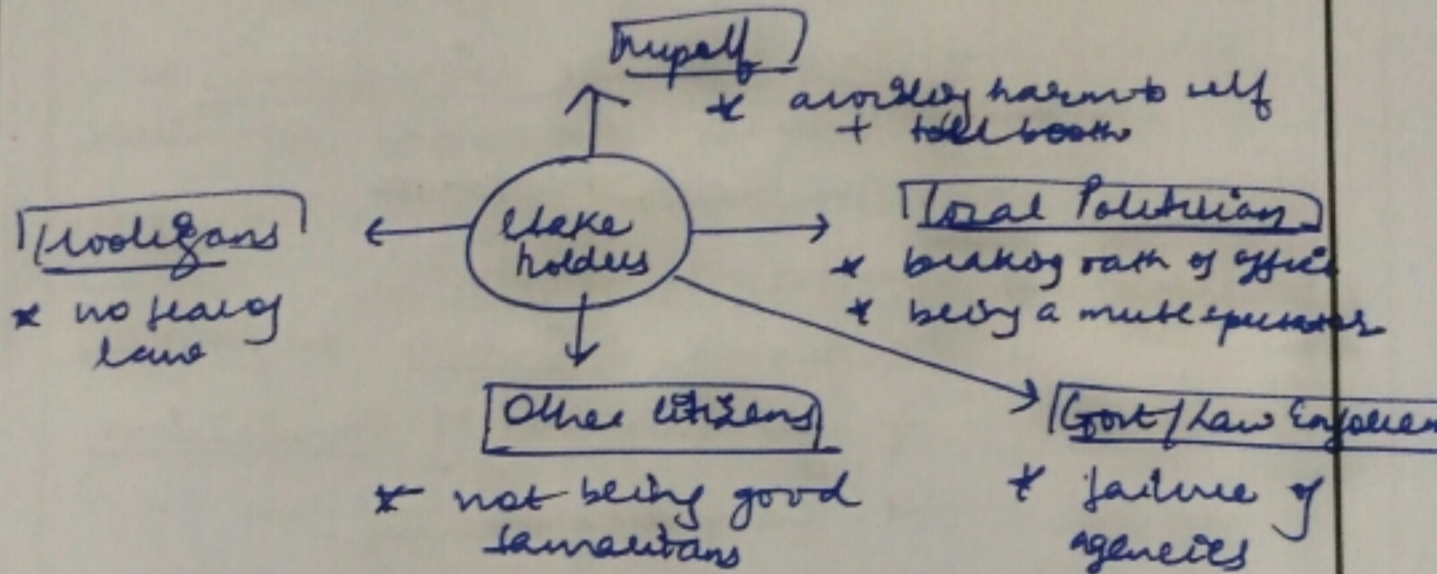 Myself
* avoiding harm to self
+ toll booth
Stake
holders
Hooligans
* no fear of
law
Local Politician
* breaking oath of office
* being a mute spectator
Other Citizens
* not being good
samaritans
Govt/Law Enforcem
* failure of
agencies